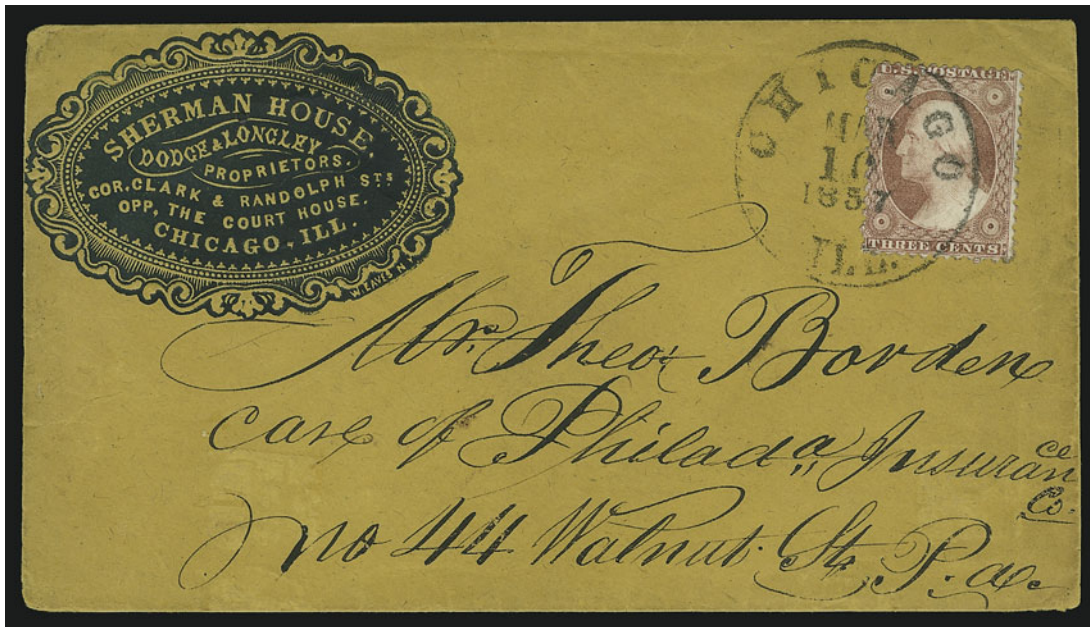 SHERMAN HOUSE.
DODGE & LONGLEY
PROPRIETORS.
COR. CLARK & RANDOLPH STS
OPP, THE COURT HOUSE.
CHICAGO, ILL.
WEAVER N
CHICAGO
MAR
10
1857
ILL.
U.S. POSTAGE
THREE CENTS
Mr. Theo. Borden
care of Philada Insurance
Co.
no 44 Walnut St. Pa.